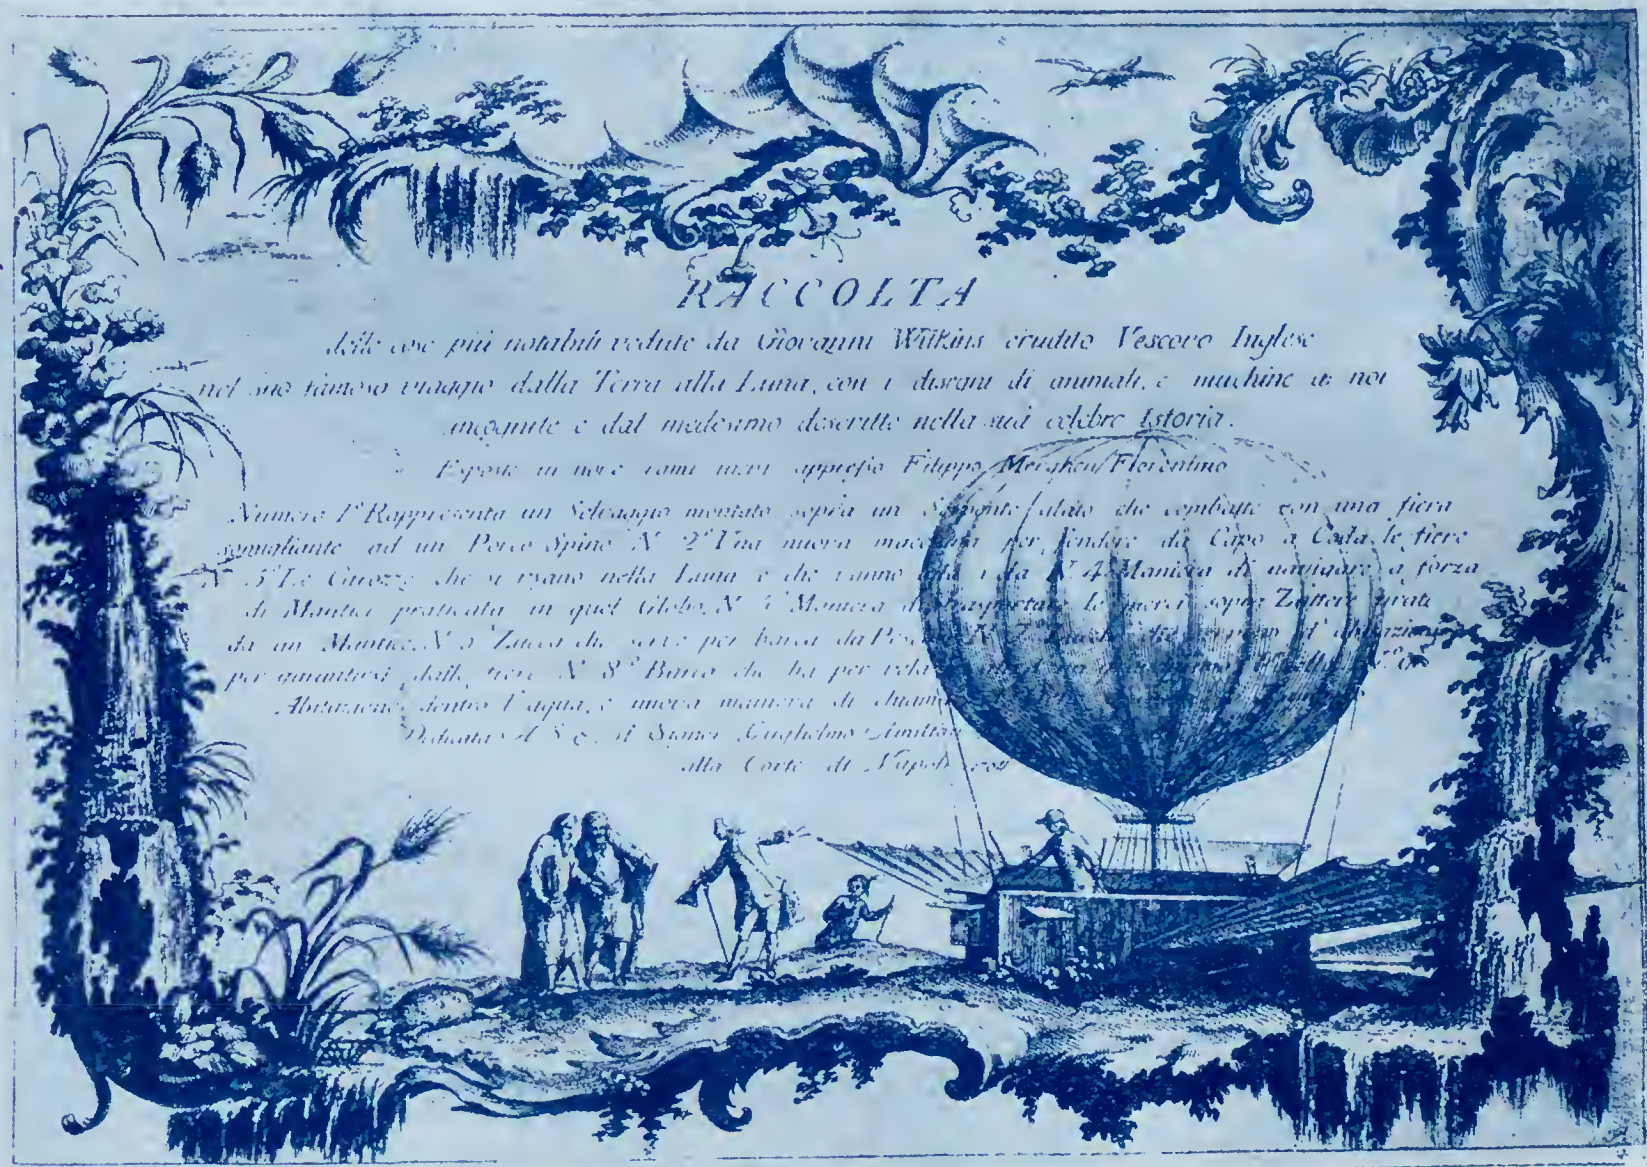 RACCOLTA
delle cose più notabili vedute da Giovanni Wilkins erudito Vescovo Inglese
nel suo famoso viaggio dalla Terra alla Luna, con i disegni di animali, e machine a noi
incognite e dal medesimo descritte nella sua celebre Istoria.
Esposte in nove rami appresso Filippo Florentino
Numero 1º Rappresenta un Selvaggio montato sopra un Serpente alato che combatte con una fiera
somigliante ad un Porco Spino N 2º Una nuova macchina per fendere da Capo a Coda le fiere
Nº 3º Le Carozze che si usano nella Luna e che vanno alla vela Nº 4º Maniera di navigare a forza
di Mantici praticata in quel Globo, N 5º Maniera di trasportare le merci sopra Zattere tirate
da un Mantice, N 6º Zucca che serve per barca da
per garantirsi dalle fiere N 8º Barca che ha per vela
Abitazione dentro l'aqua, e nuova maniera di
Dedicata A S. E. il Signor Guglielmo
alla Corte di Napoli